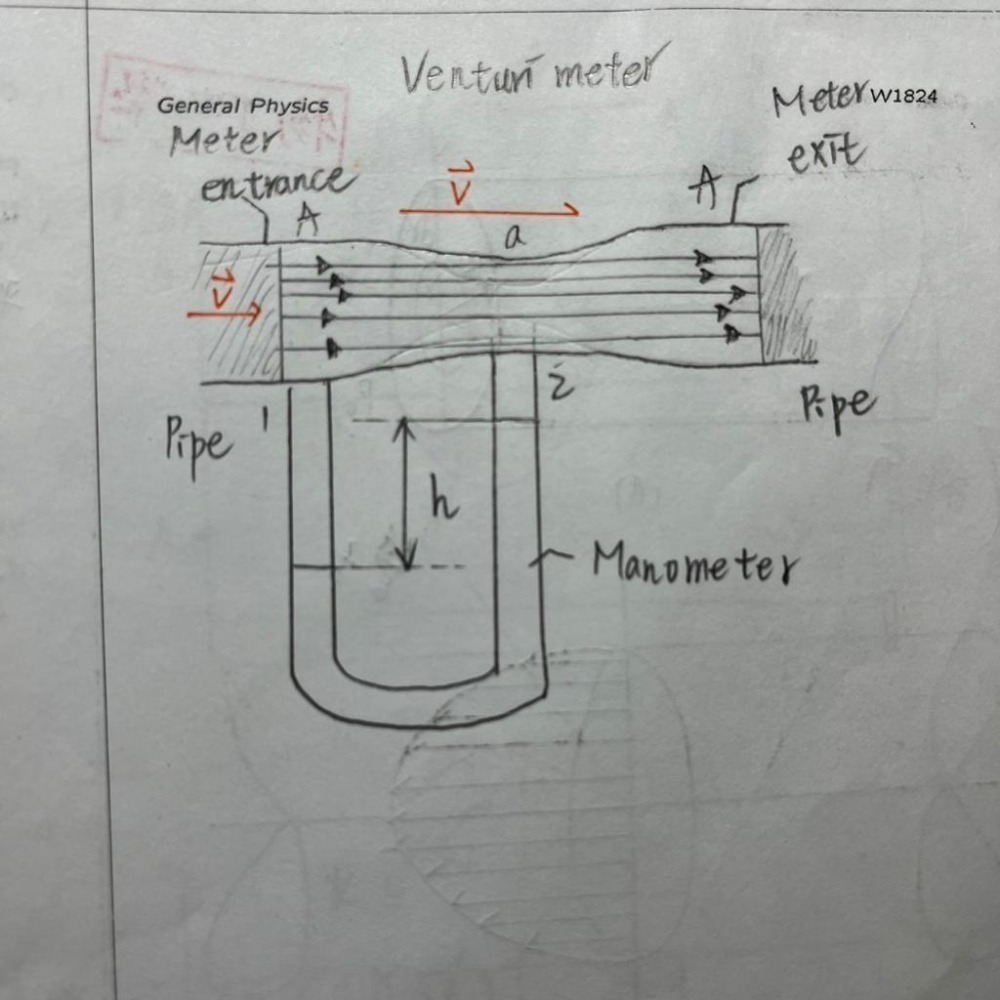 Venturi meter
General Physics
Meter W1824
Meter
exit
entrance
V
A
A
a
V
1
2
Pipe
Pipe
h
Manometer